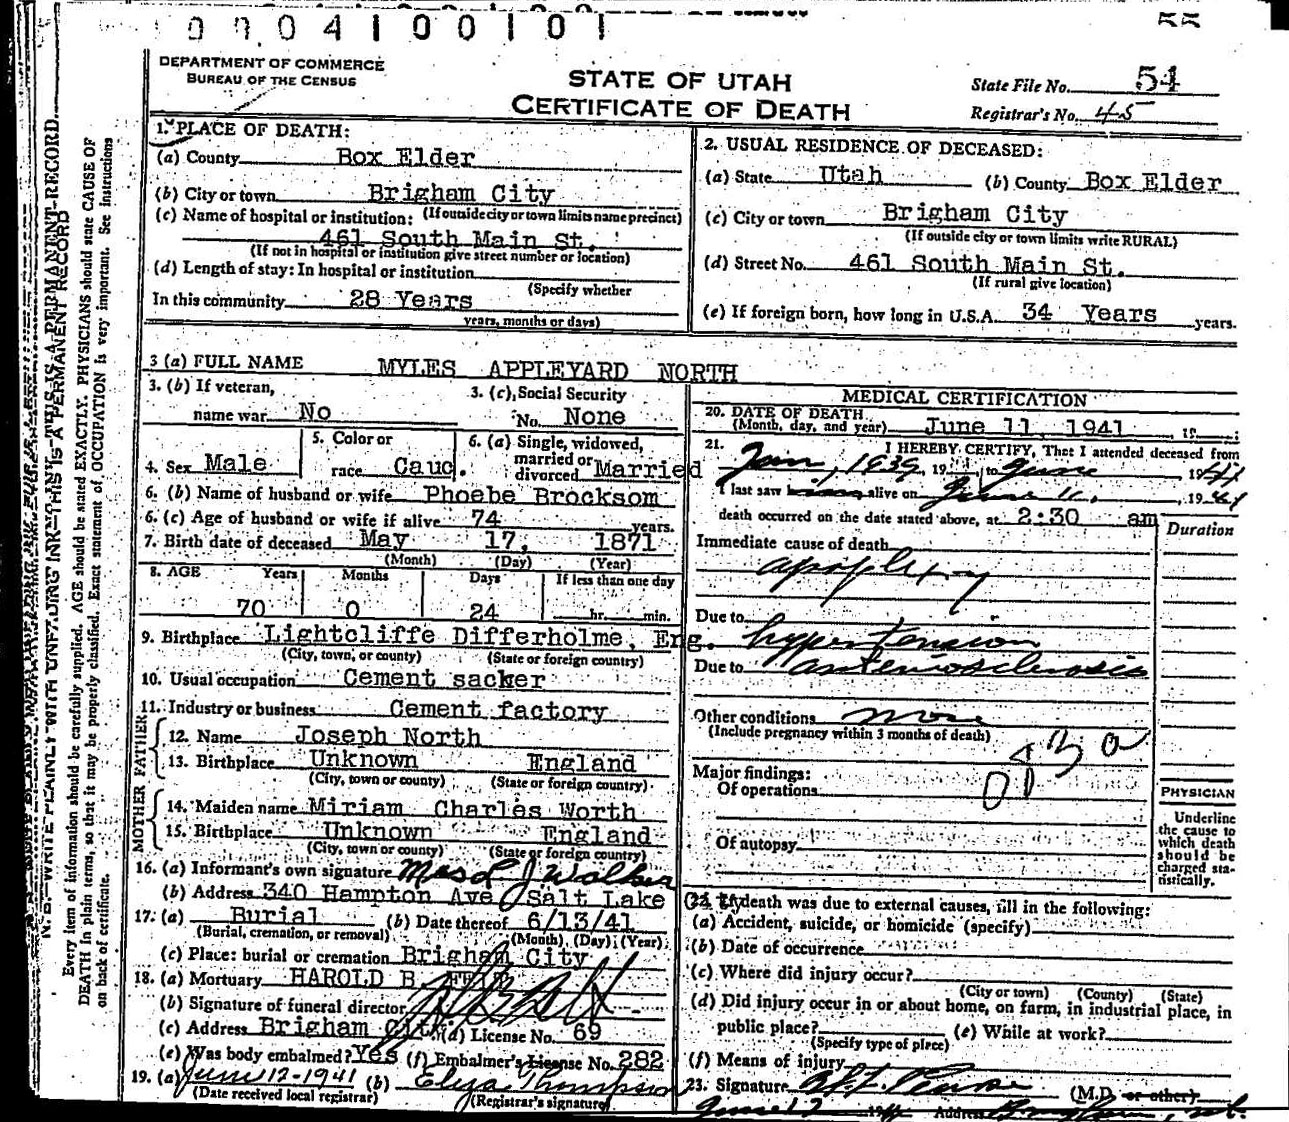 0 0 0 4 1 0 0 1 0 1
55
DEPARTMENT OF COMMERCE
BUREAU OF THE CENSUS
STATE OF UTAH
CERTIFICATE OF DEATH
State File No. 54
Registrar's No. 45
1. PLACE OF DEATH:
(a) County Box Elder
(b) City or town Brigham City
(c) Name of hospital or institution: (If outside city or town limits name precinct)
461 South Main St.
(If not in hospital or institution give street number or location)
(d) Length of stay: In hospital or institution
(Specify whether
In this community 28 Years
years, months or days)
2. USUAL RESIDENCE OF DECEASED:
(a) State Utah (b) County Box Elder
(c) City or town Brigham City
(If outside city or town limits write RURAL)
(d) Street No. 461 South Main St.
(If rural give location)
(e) If foreign born, how long in U.S.A. 34 Years years.
3 (a) FULL NAME MYLES APPLEYARD NORTH
3. (b) If veteran,
name war No
3. (c) Social Security
No. None
4. Sex Male
5. Color or
race Cauc.
6. (a) Single, widowed,
married or
divorced Married
6. (b) Name of husband or wife Phoebe Brocksom
6. (c) Age of husband or wife if alive 74 years.
7. Birth date of deceased May 17, 1871
(Month) (Day) (Year)
8. AGE Years Months Days If less than one day
70 0 24 hr. min.
9. Birthplace Lightcliffe Differholme, Eng.
(City, town, or county) (State or foreign country)
10. Usual occupation Cement sacker
11. Industry or business Cement factory
FATHER
12. Name Joseph North
13. Birthplace Unknown England
(City, town or county) (State or foreign country)
MOTHER
14. Maiden name Miriam Charles Worth
15. Birthplace Unknown England
(City, town or county) (State or foreign country)
16. (a) Informant's own signature Mrs L J Walker
(b) Address 340 Hampton Ave Salt Lake City
17. (a) Burial (b) Date thereof 6/13/41
(Burial, cremation, or removal) (Month) (Day) (Year)
(c) Place: burial or cremation Brigham City
18. (a) Mortuary HAROLD B. FELT
(b) Signature of funeral director
(c) Address Brigham City (d) License No. 69
(e) Was body embalmed? Yes (f) Embalmer's License No. 282
19. (a) June 12-1941 (b) Eliza Thompson
(Date received local registrar) (Registrar's signature)
MEDICAL CERTIFICATION
20. DATE OF DEATH
(Month, day, and year) June 11, 1941, 19
21. I HEREBY CERTIFY, That I attended deceased from
Jan, 1939, 19 to June 1941
I last saw him alive on June 11, 1941
death occurred on the date stated above, at 2:30 am
Duration
Immediate cause of death
apoplexy
Due to hypertension
Due to arteriosclerosis
Other conditions none
(Include pregnancy within 3 months of death)
Major findings:
Of operations
Of autopsy
PHYSICIAN
Underline
the cause to
which death
should be
charged sta-
tistically.
22. If death was due to external causes, fill in the following:
(a) Accident, suicide, or homicide (specify)
(b) Date of occurrence
(c) Where did injury occur?
(City or town) (County) (State)
(d) Did injury occur in or about home, on farm, in industrial place, in
public place? (e) While at work?
(Specify type of place)
(f) Means of injury
23. Signature (M.D. or other)
June 12 1941 Address Brigham, Ut.
N. B.—WRITE PLAINLY WITH UNFADING INK—THIS IS A PERMANENT RECORD
Every item of information should be carefully supplied. AGE should be stated EXACTLY. PHYSICIANS should state CAUSE OF
DEATH in plain terms, so that it may be properly classified. Exact statement of OCCUPATION is very important. See instructions
on back of certificate.